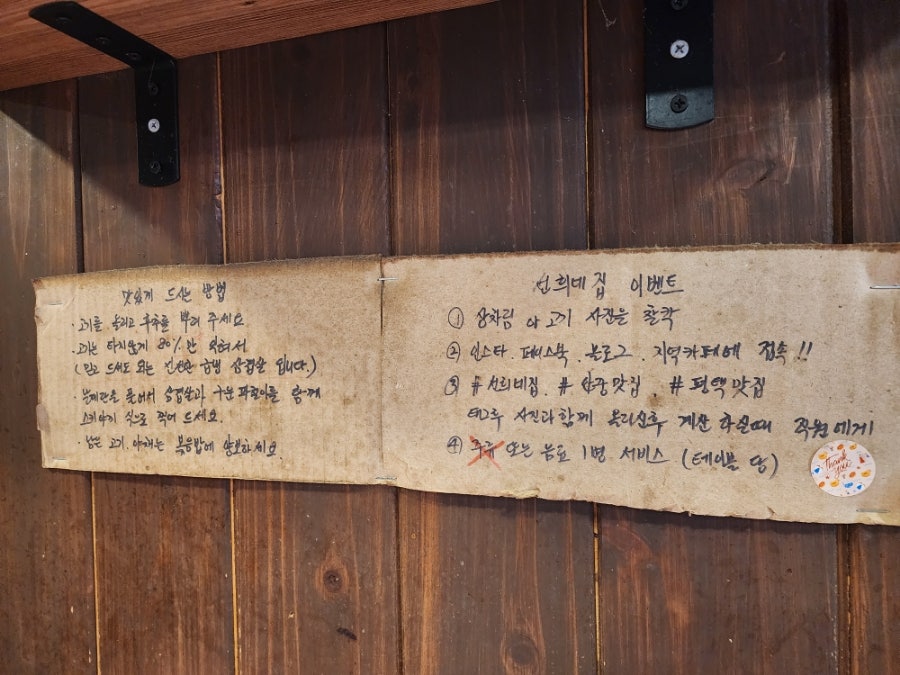 맛있게 드시는 방법
· 고기를 올리고 후추를 뿌려 주세요
· 고기는 타지않게 80%만 익혀서
(밀로 드셔도 되는 신선한 급냉 삼겹살 입니다.)
풀어서 삼겹살과 구운 파절이를 함께
식으로 드세요.
· 남은 고기. 야채는 볶음밥에 양보하세요
선희네집 이벤트
① 상차림 야 고기 사진을 찰칵
② 인스타. 페이스북. 블로그. 지역카페에 접속!!
③ #선희네집. #삼중맛집. #평택맛집
태그후 사진과함께 올리신후 계산 하실때 직원에게
④ 주류 또는 음료 1병 서비스 (테이블 당)
Thank you!